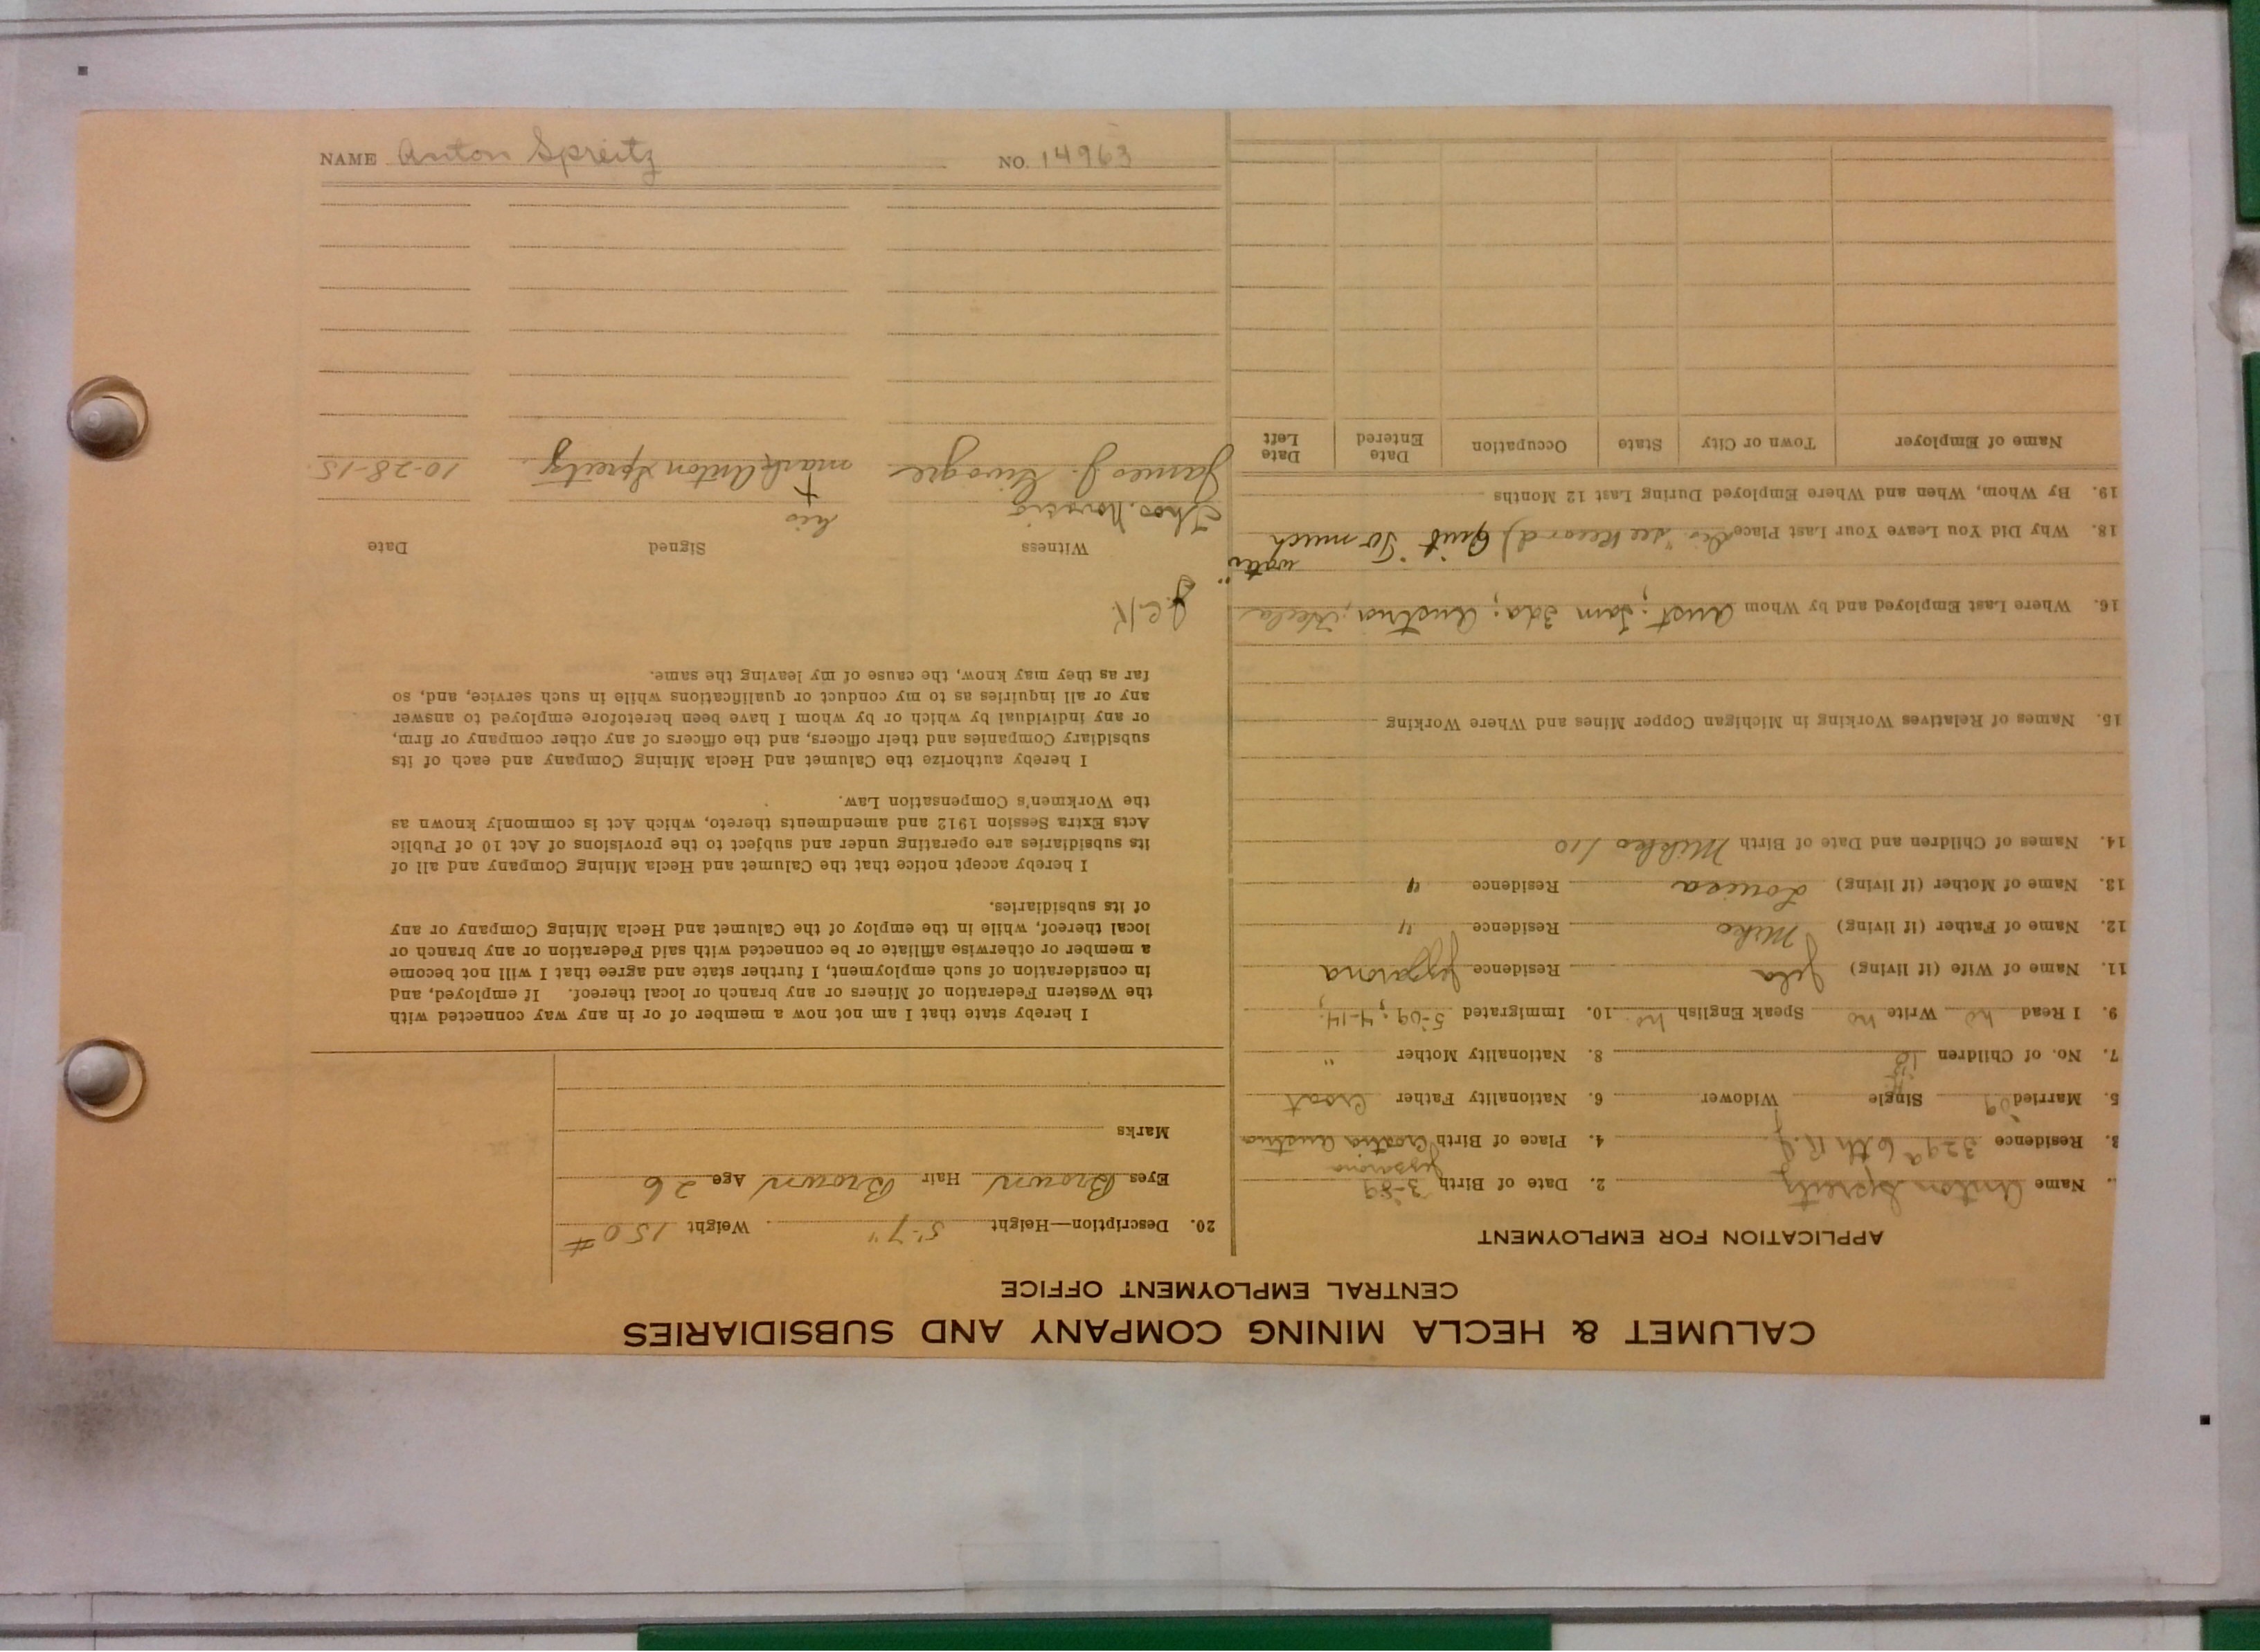 CALUMET & HECLA MINING COMPANY AND SUBSIDIARIES
CENTRAL EMPLOYMENT OFFICE
APPLICATION FOR EMPLOYMENT
Name Anton Spreitz 2. Date of Birth 3-89
3. Residence 3299 6th R.J. 4. Place of Birth Croatia Austria
5. Married 09 Single Widower 6. Nationality Father Croat
7. No. of Children 8. Nationality Mother "
9. I Read no Write no Speak English no 10. Immigrated 5-09; 4-14;
11. Name of Wife (if living) Jela Residence
12. Name of Father (if living) Miko Residence "
13. Name of Mother (if living) Louisa Residence "
14. Names of Children and Date of Birth Mikko /10
15. Names of Relatives Working in Michigan Copper Mines and Where Working
16. Where Last Employed and by Whom Aust; Tam 3da; Austria; Hecla
18. Why Did You Leave Your Last Place see Record) Quit "To much
water"
19. By Whom, When and Where Employed During Last 12 Months
Name of Employer Town or City State Occupation Date Entered Date Left
20. Description—Height 5'-7" Weight 150#
Eyes Brown Hair Brown Age 26
Marks
I hereby state that I am not now a member of or in any way connected with
the Western Federation of Miners or any branch or local thereof. If employed, and
in consideration of such employment, I further state and agree that I will not become
a member or otherwise affiliate or be connected with said Federation or any branch or
local thereof, while in the employ of the Calumet and Hecla Mining Company or any
of its subsidiaries.
I hereby accept notice that the Calumet and Hecla Mining Company and all of
its subsidiaries are operating under and subject to the provisions of Act 10 of Public
Acts Extra Session 1912 and amendments thereto, which Act is commonly known as
the Workmen's Compensation Law.
I hereby authorize the Calumet and Hecla Mining Company and each of its
subsidiary Companies and their officers, and the officers of any other company or firm,
or any individual by which or by whom I have been heretofore employed to answer
any or all inquiries as to my conduct or qualifications while in such service, and, so
far as they may know, the cause of my leaving the same.
J.C.K.
Witness Signed Date
Thos. his
James J. mark Anton Spreitz 10-28-15.
NAME Anton Spreitz NO. 14963